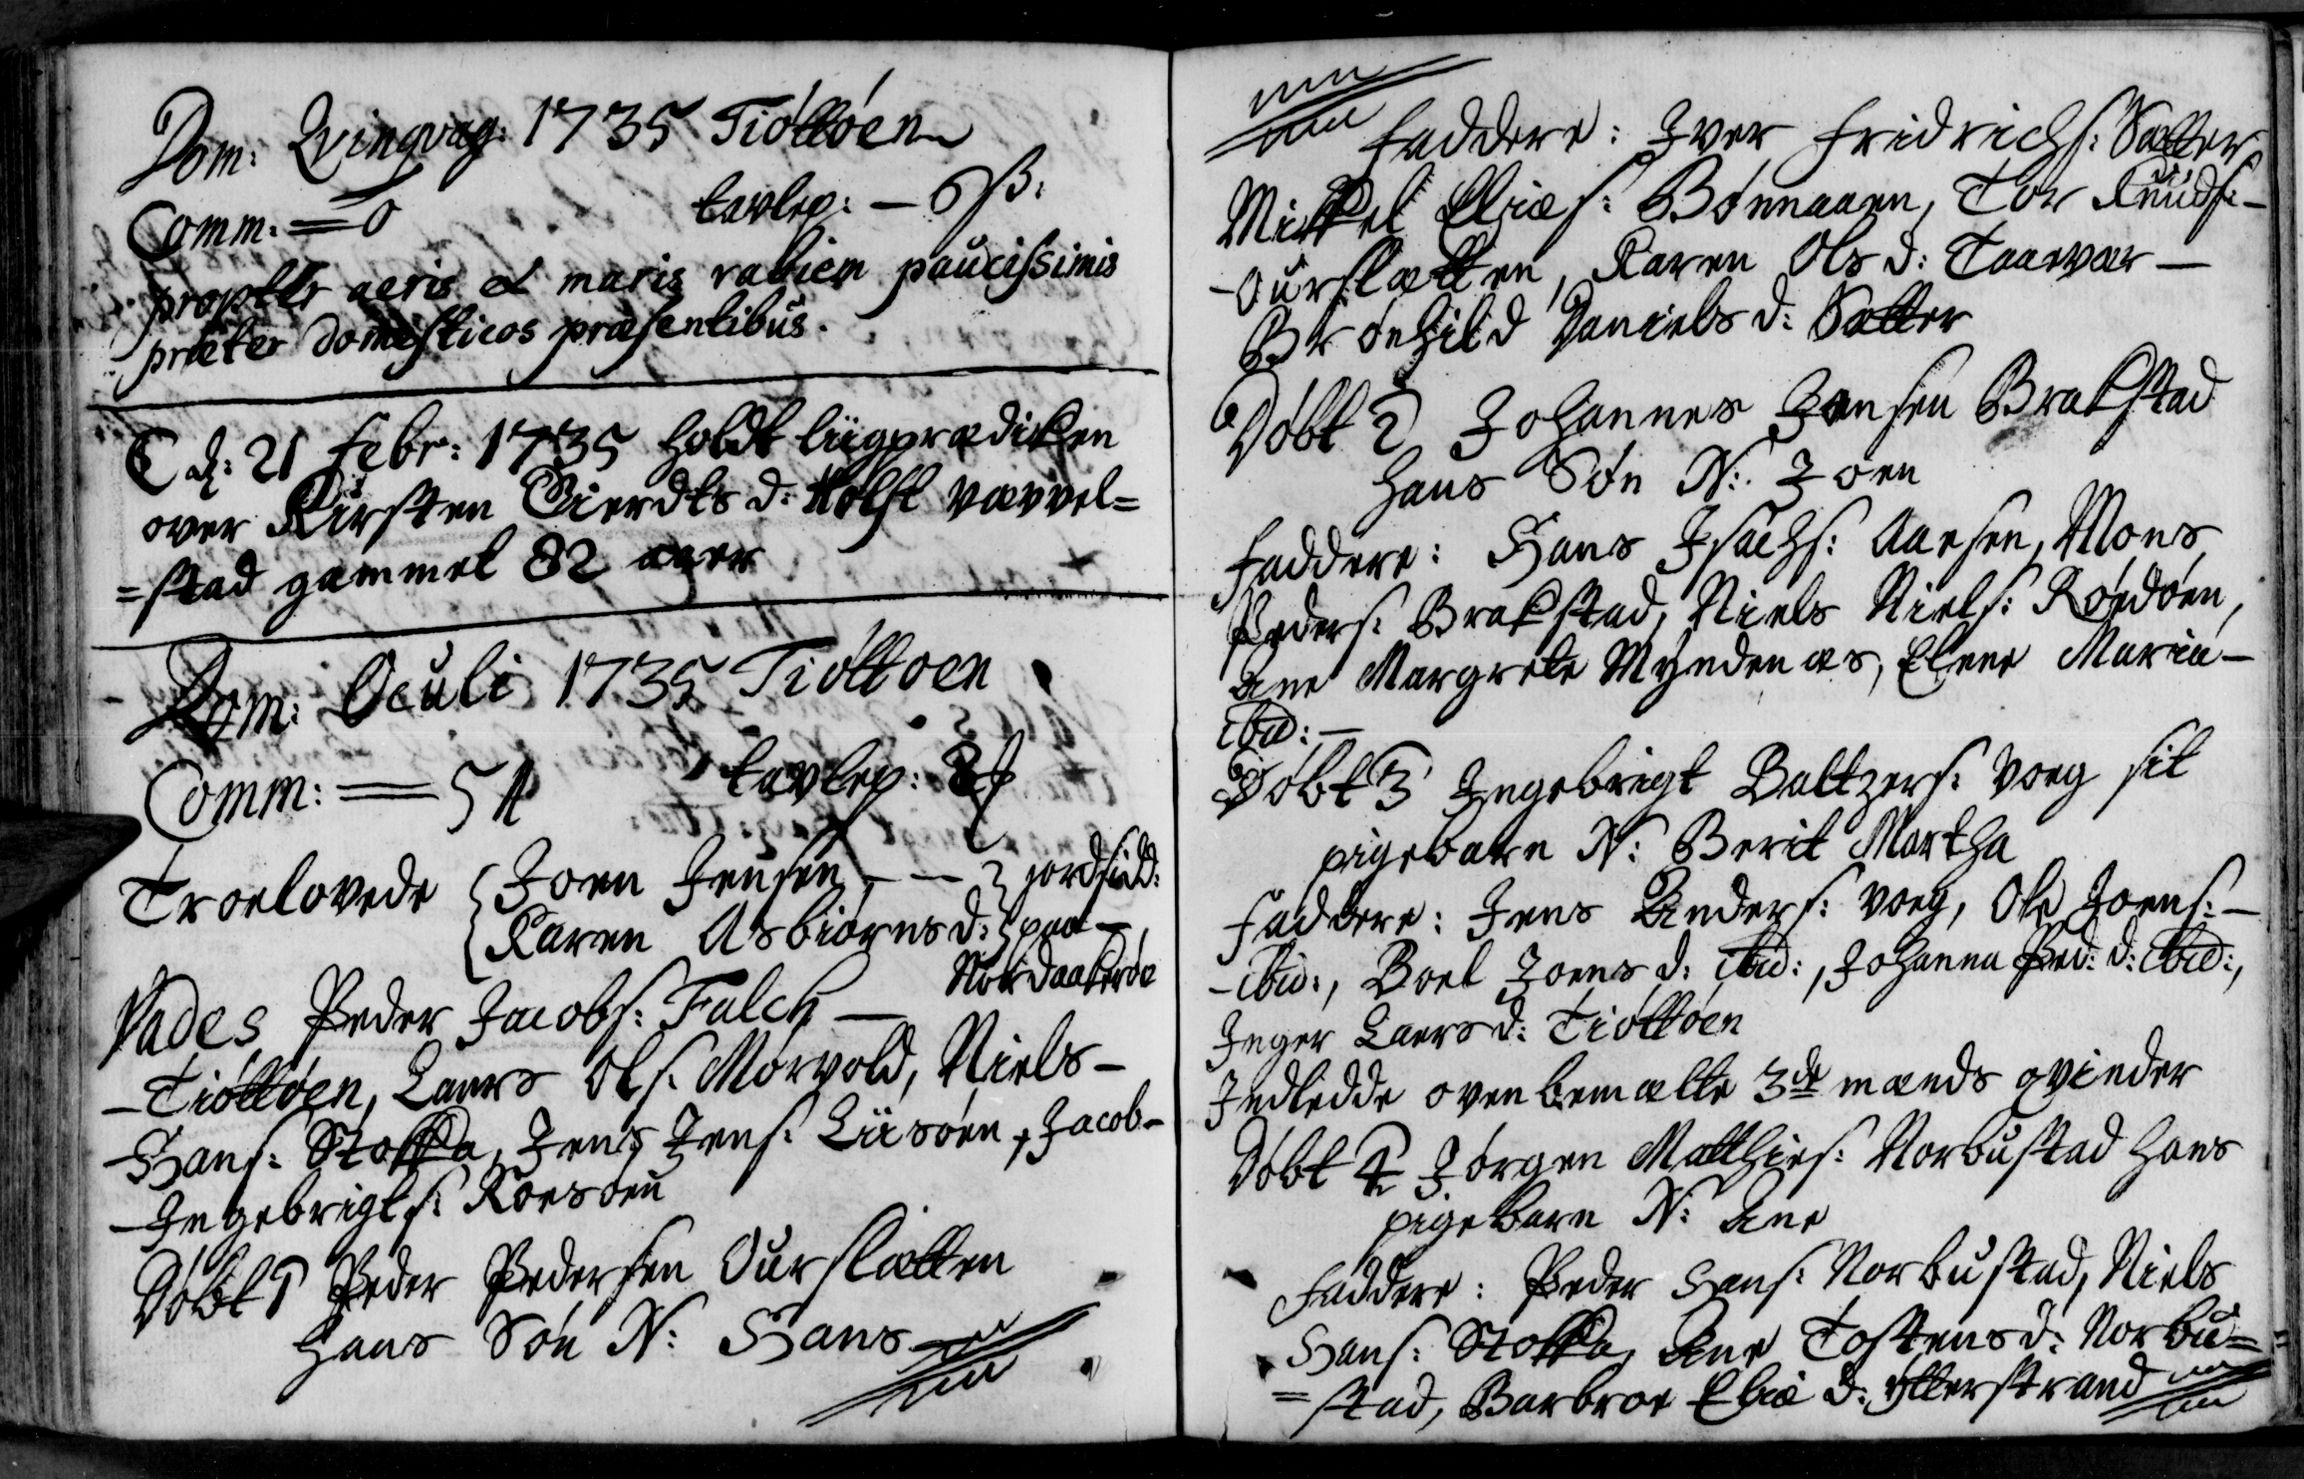 Dom: Qvinqvag: 1735 Tióttóen
Comm. = 0 tavlep: — 6 ß:
propter aeris et maris rabiem paucissimis
præter domesticos præsentibus.
d: 21 Febr: 1735 holdt liigprædicken
over Kirsten Gierdts d: Holst Vævel=
=stad gammel 82 aar
Dom: Oculi 1735 Tióttoen
Comm: = 51 tavlep:
Troelovede Joen Jensen — — jordfæld:
Karen Asbiórns d: paa —
Nordaakeróe
Vades Peder Jacobs: Falch —
— Tióttóen, Laurs Ols: Morvold, Niels —
— Hans: Stokka, Jens Jens: Liisóen, Jacob —
— Ingebrigts: Roesóen
Dóbt 1 Peder Pedersen Ourslætten
Hans Són N: Hans
Faddere: Iver Fridrichs: Sætter,
Mikkel Eliæs: Bónnaaen, Tor Knuds: —
— Ourslætten, Karen Ols d: Taarvær —
Brónhild Daniels d: Sætter
Dóbt 2 Johannes Jensen Brakstad
Hans Són N: Joen
Faddere: Hans Isachs: Aarsen, Mons
Peders: Brakstad, Niels Niels: Róedóen,
Ane Margrete Myndenæs, Elene Maria —
ibid: —
Dóbt 3 Ingebrigt Baltzers: Voeg sit
pigebarn N: Berit Martha
Faddere: Jens Anders: Voeg, Ole Joens: —
— ibid:, Boel Joens d: ibid:, Johanna Ped: d: ibid:,
Inger Laers d: Tióttóen
Indledde ovenbemælte 3de mænds qvinder
Dóbt 4 Jórgen Matthies: Norbustad Hans
pigebarn N: Ane
Faddere: Peder Hans: Norbustad, Niels
Hans: Stokka, Ane Tostens d: Norbu=
=stad, Barbroe Eliæ d: Ytterstrand